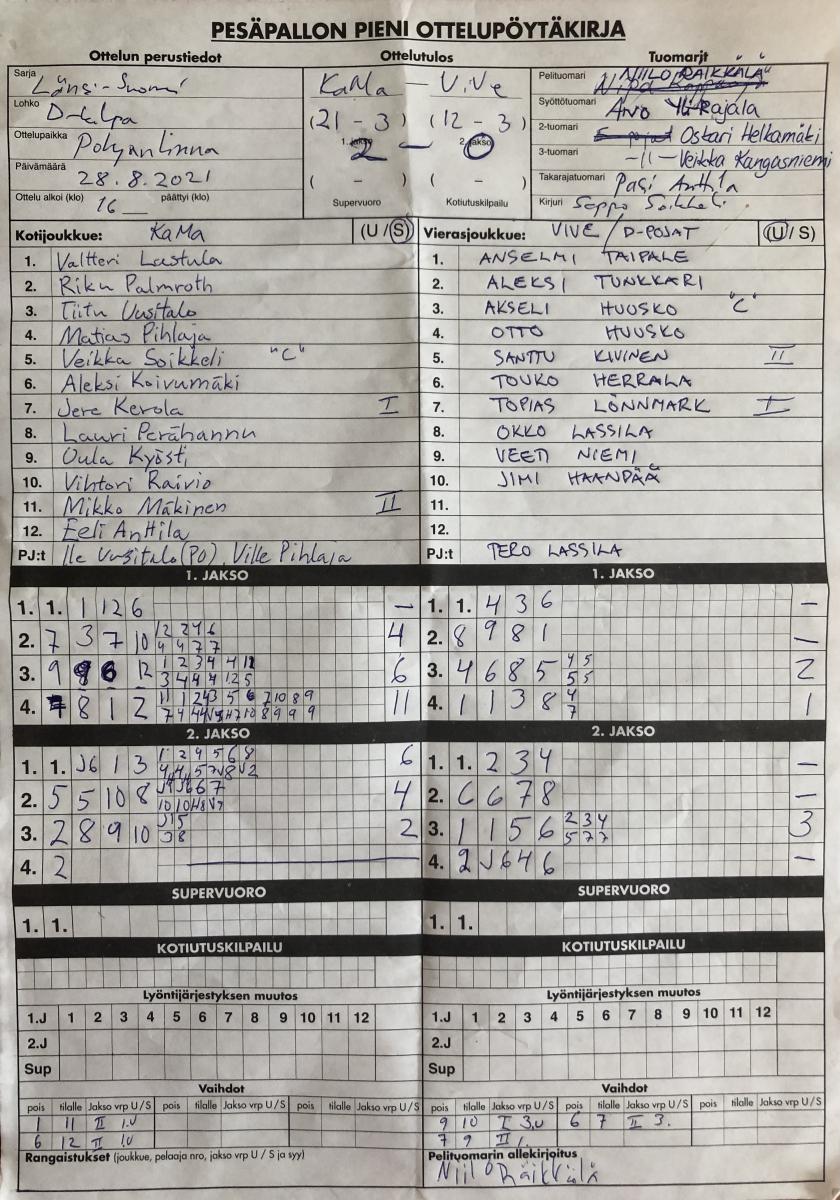 PESÄPALLON PIENI OTTELUPÖYTÄKIRJA
Ottelun perustiedot Ottelutulos Tuomarjt
Sarja Länsi-Suomi
Lohko D-kilpa
Ottelupaikka Pohjanlinna
Päivämäärä 28.8.2021
Ottelu alkoi (klo) 16 päättyi (klo)
KaMa — ViVe
(21 - 3) (12 - 3)
1. jakso 2. jakso
2 — 0
( - ) ( - )
Supervuoro Kotiutuskilpailu
Pelituomari NIILO RÄIKKÄLÄ
Syöttötuomari Arvo Yli-Rajala
2-tuomari Oskari Helkamäki
3-tuomari -11- Veikka Kangasniemi
Takarajatuomari Pasi Anttila
Kirjuri Seppo Soikkeli
Kotijoukkue: KaMa (U / S)
1. Valtteri Lastula
2. Riku Palmroth
3. Tiitu Uusitalo
4. Matias Pihlaja
5. Veikka Soikkeli "C"
6. Aleksi Koivumäki
7. Jere Kerola I
8. Lauri Perähannu
9. Oula Kyösti
10. Vihtori Raivio
11. Mikko Mäkinen II
12. Eeli Anttila
PJ:t Ile Uusitalo (PO), Ville Pihlaja
Vierasjoukkue: VIVE / D-POJAT (U / S)
1. ANSELMI TAIPALE
2. ALEKSI TUNKKARI
3. AKSELI HUUSKO "C"
4. OTTO HUUSKO
5. SANTTU KIVINEN II
6. TOUKO HERRALA
7. TOPIAS LÖNNMARK I
8. OKKO LASSILA
9. VEETI NIEMI
10. JIMI HAANPÄÄ
11.
12.
PJ:t TERO LASSILA
1. JAKSO
1. 1. 1 12 6 —
2. 7 3 7 10 4
3. 9 6 12 6
4. 8 1 2 11
1. JAKSO
1. 1. 4 3 6 —
2. 8 9 8 1 —
3. 4 6 8 5 4 5 2
5 5
4. 1 1 3 8 4 1
7
2. JAKSO
1. 1. J6 1 3 6
2. 5 5 10 8 4
3. 2 8 9 10 J1 5 2
4. 2
2. JAKSO
1. 1. 2 3 4 —
2. 6 6 7 8 —
3. 1 1 5 6 2 3 4 3
5 7 7
4. 2 J6 4 6 —
SUPERVUORO
1. 1.
SUPERVUORO
1. 1.
KOTIUTUSKILPAILU
KOTIUTUSKILPAILU
Lyöntijärjestyksen muutos
1.J 1 2 3 4 5 6 7 8 9 10 11 12
2.J
Sup
Lyöntijärjestyksen muutos
1.J 1 2 3 4 5 6 7 8 9 10 11 12
2.J
Sup
Vaihdot
pois tilalle Jakso vrp U/S pois tilalle Jakso vrp U/S pois tilalle Jakso vrp U/S
1 11 II 1.U
6 12 II 1.U
Vaihdot
pois tilalle Jakso vrp U/S pois tilalle Jakso vrp U/S pois tilalle Jakso vrp U/S
9 10 I 3.U 6 7 II 3.
7 9 II
Rangaistukset (joukkue, pelaaja nro, jakso vrp U / S ja syy)
Pelituomarin allekirjoitus
Niilo Räikkälä